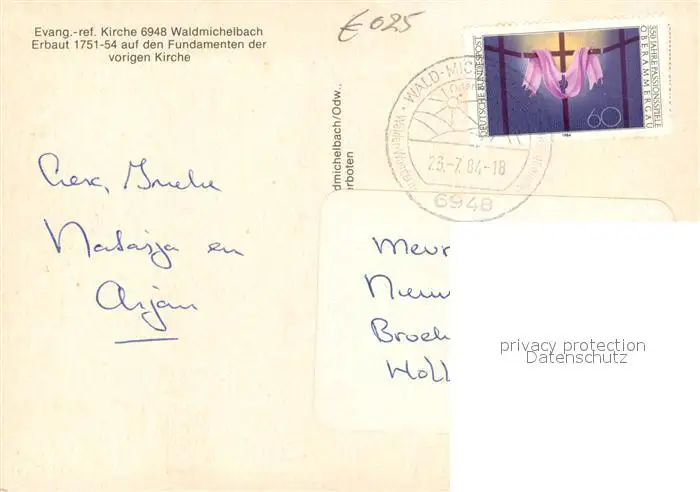 Evang.-ref. Kirche 6948 Waldmichelbach
Erbaut 1751-54 auf den Fundamenten der
vorigen Kirche
€ 025
dmichelbach/Odw.,
erboten
DEUTSCHE BUNDESPOST
350 JAHRE PASSIONSSPIELE
OBERAMMERGAU
60
1984
WALD-MIC
23.-7.84-18
6948
Natasja en
Arjan
Mevr
Nieuw
Broek
Holl
privacy protection
Datenschutz